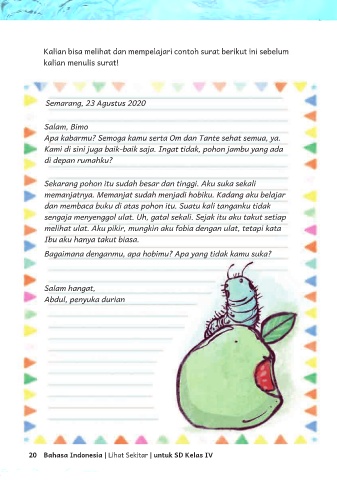 Kalian bisa melihat dan mempelajari contoh surat berikut ini sebelum
kalian menulis surat!
Semarang, 23 Agustus 2020
Salam, Bimo
Apa kabarmu? Semoga kamu serta Om dan Tante sehat semua, ya.
Kami di sini juga baik-baik saja. Ingat tidak, pohon jambu yang ada
di depan rumahku?
Sekarang pohon itu sudah besar dan tinggi. Aku suka sekali
memanjatnya. Memanjat sudah menjadi hobiku. Kadang aku belajar
dan membaca buku di atas pohon itu. Suatu kali tanganku tidak
sengaja menyenggol ulat. Uh, gatal sekali. Sejak itu aku takut setiap
melihat ulat. Aku pikir, mungkin aku fobia dengan ulat, tetapi kata
Ibu aku hanya takut biasa.
Bagaimana denganmu, apa hobimu? Apa yang tidak kamu suka?
Salam hangat,
Abdul, penyuka durian
20 Bahasa Indonesia | Lihat Sekitar | untuk SD Kelas IV